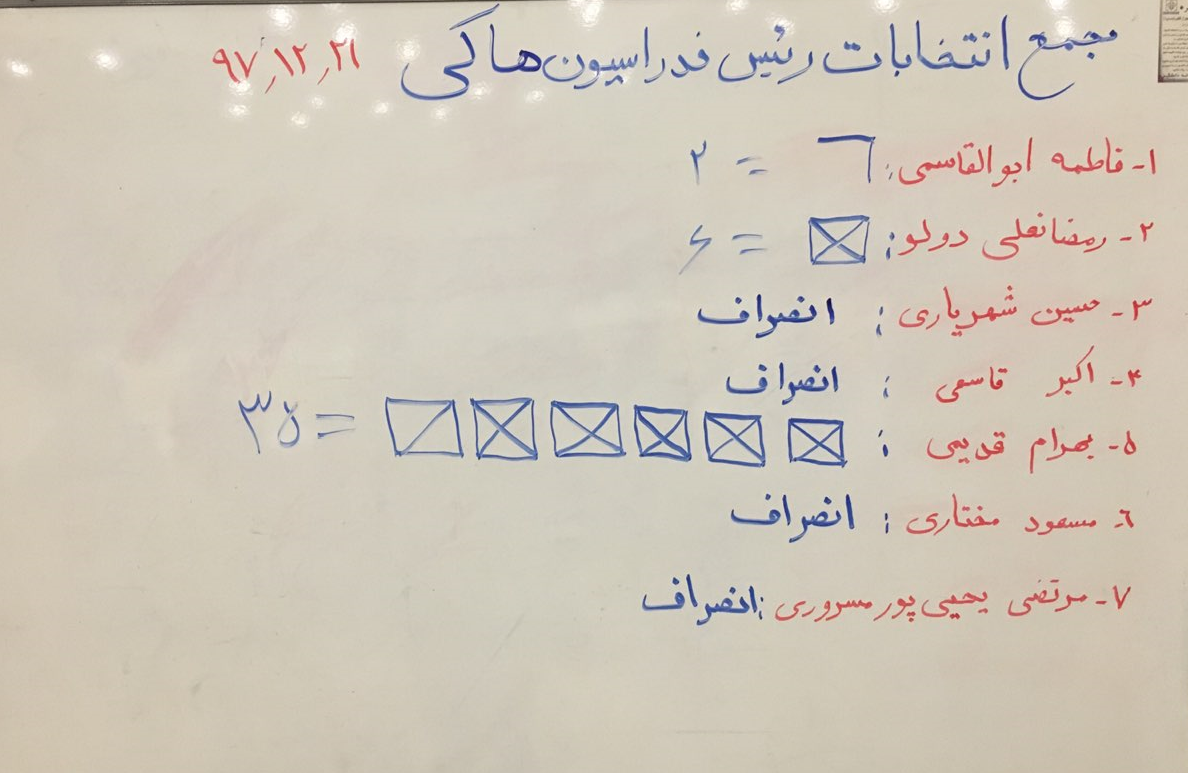 مجمع انتخابات رئیس فدراسیون هاکی ۹۷٫۱۲٫۲۱
۱- فاطمه ابوالقاسمی: = ۲
۲- رمضانعلی دولو: = ۶
۳- حسین شهریاری : انصراف
۴- اکبر قاسمی : انصراف
۵- بهرام قدیمی : = ۳۵
۶- مسعود مختاری : انصراف
۷- مرتضی یحیی پور مسروری : انصراف